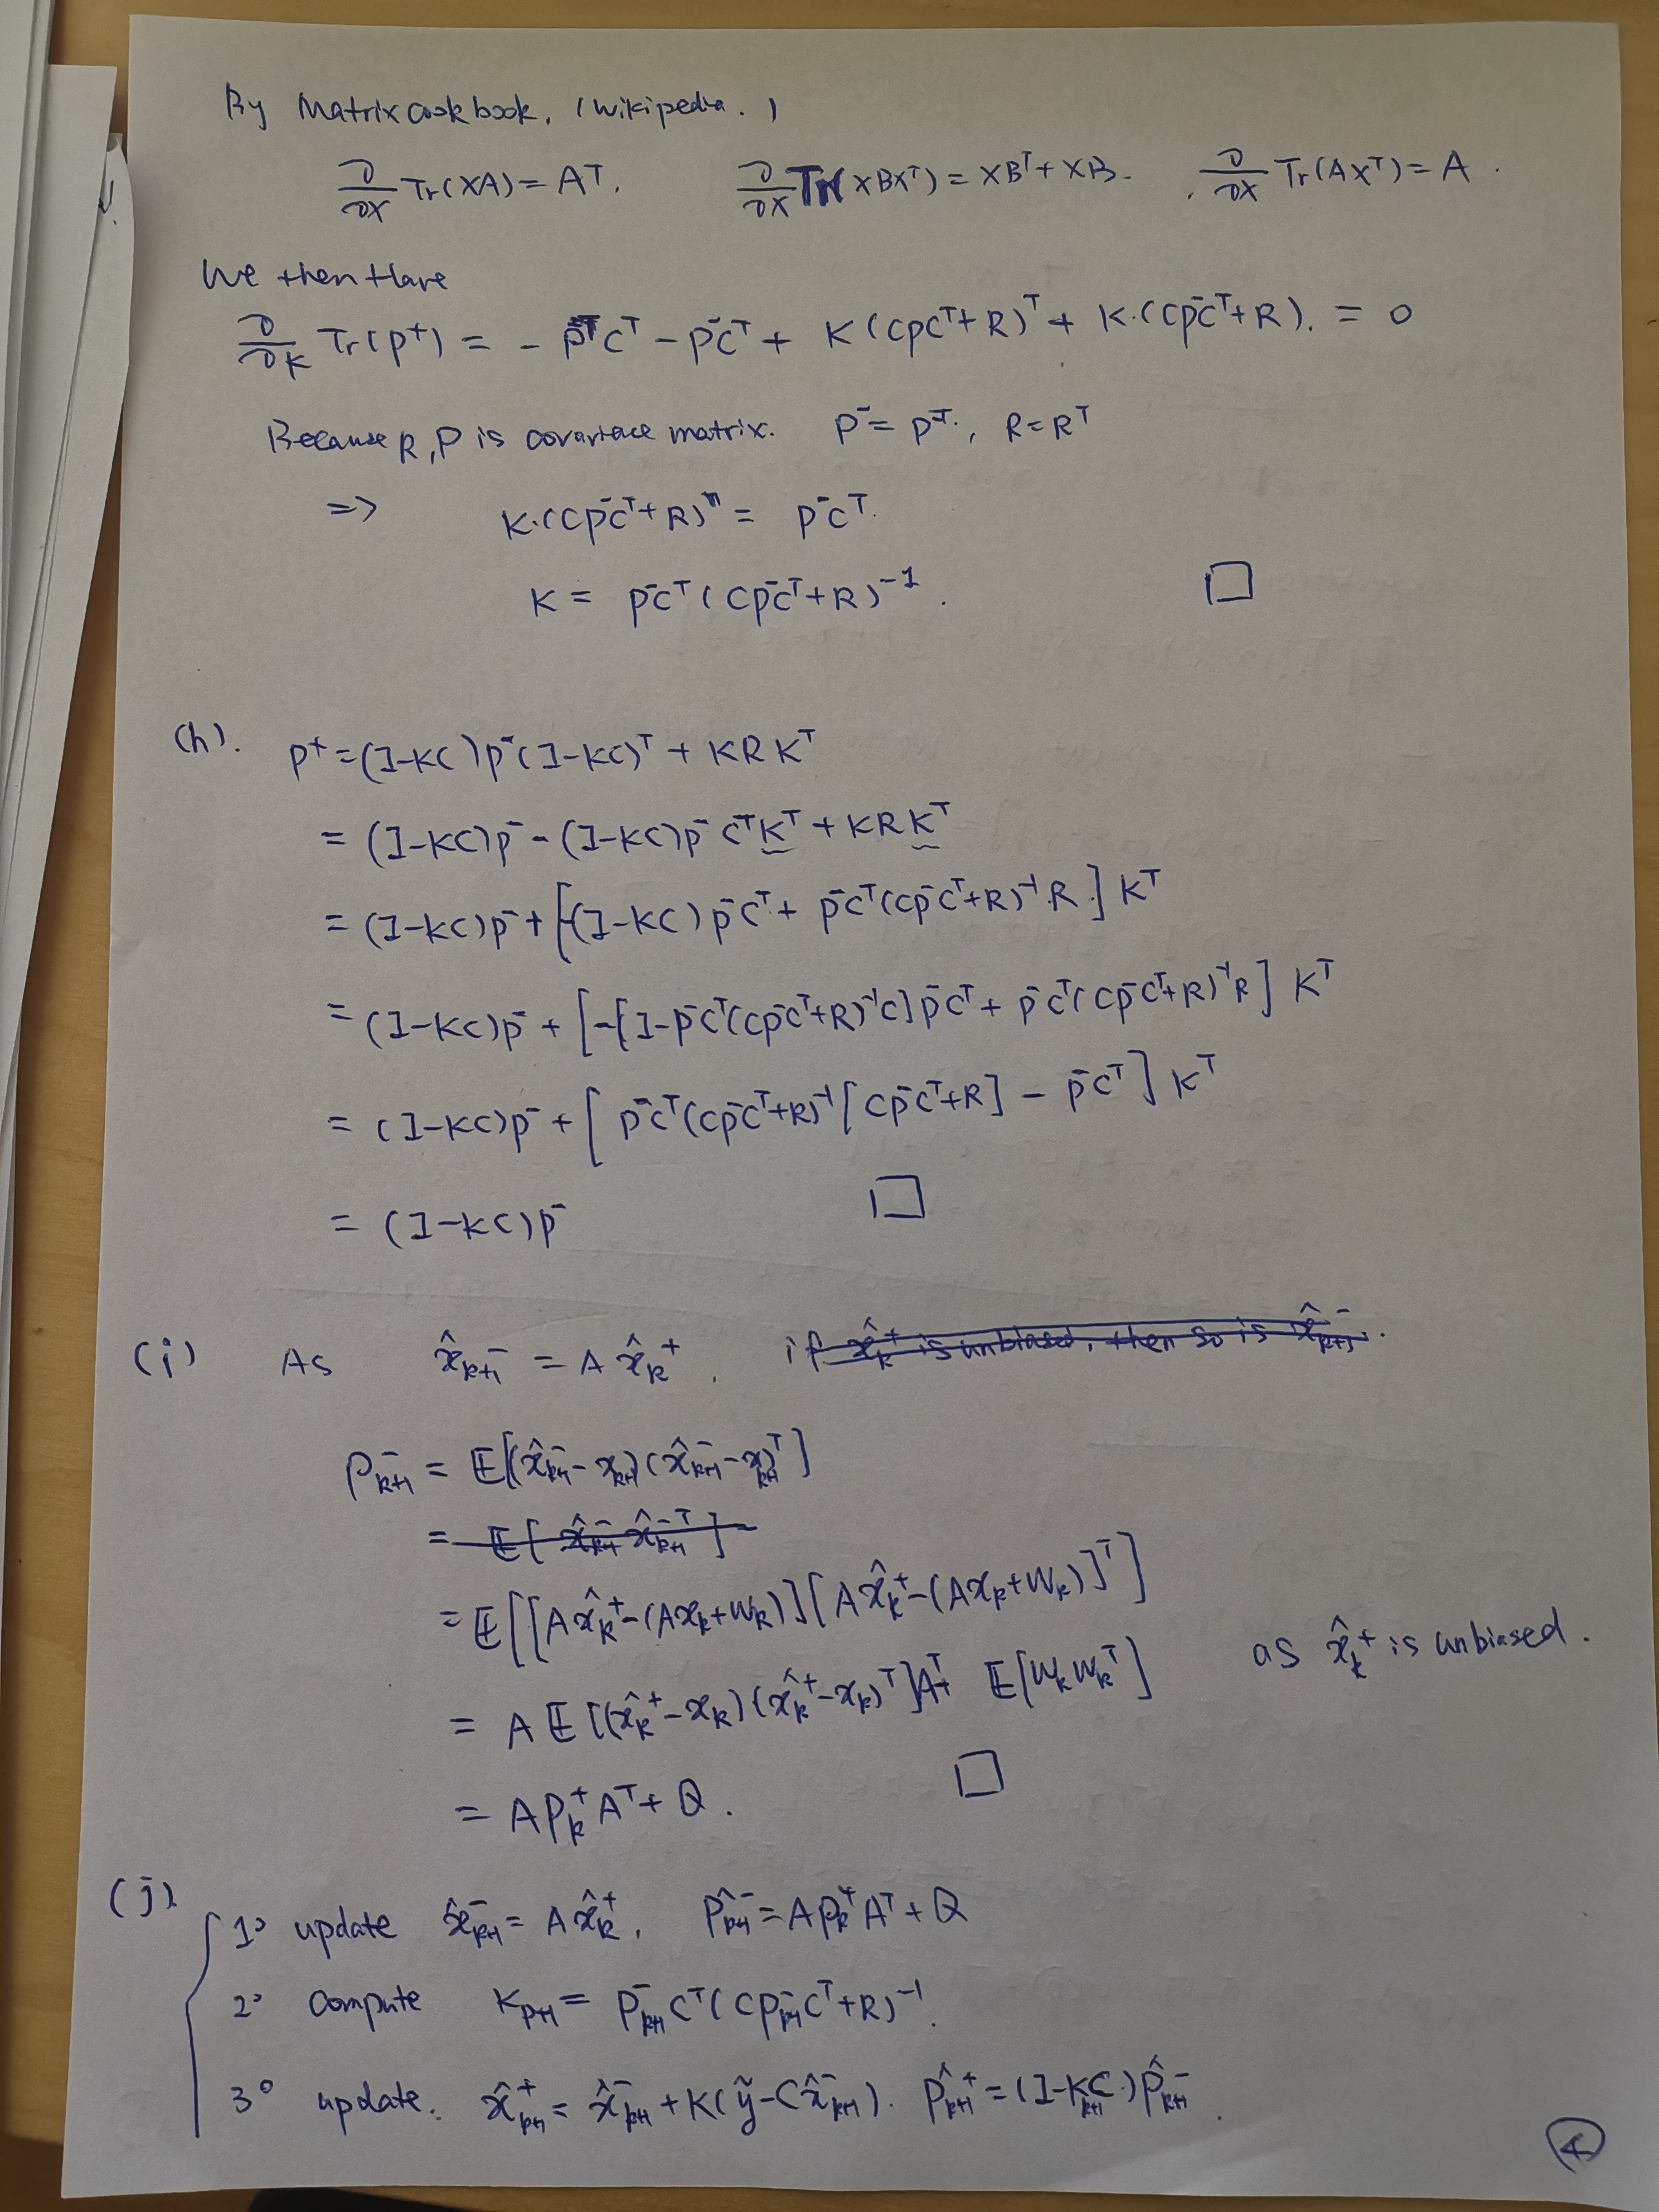 By Matrixcookbook, (Wikipedia.)
∂/∂X Tr(XA) = Aᵀ, ∂/∂X Tr(XBXᵀ) = XBᵀ + XB. , ∂/∂X Tr(AXᵀ) = A .
We then Have
∂/∂K Tr(P⁺) = - P⁻ᵀCᵀ - P⁻Cᵀ + K(CPCᵀ + R)ᵀ + K·(CP⁻Cᵀ + R). = 0
Because R, P is covariace matrix. P⁻ = P⁻ᵀ., R = Rᵀ
=> K·(CP⁻Cᵀ + R) = P⁻Cᵀ.
K = P⁻Cᵀ(CP⁻Cᵀ + R)⁻¹. □
(h). P⁺ = (I-KC)P⁻(I-KC)ᵀ + KRKᵀ
= (I-KC)P⁻ - (I-KC)P⁻CᵀKᵀ + KRKᵀ
= (I-KC)P⁻ + [-(I-KC)P⁻Cᵀ + P⁻Cᵀ(CP⁻Cᵀ+R)⁻¹·R.]Kᵀ
= (I-KC)P⁻ + [-[I-P⁻Cᵀ(CP⁻Cᵀ+R)⁻¹C]P⁻Cᵀ + P⁻Cᵀ(CP⁻Cᵀ+R)⁻¹R]Kᵀ
= (I-KC)P⁻ + [P⁻Cᵀ(CP⁻Cᵀ+R)⁻¹[CP⁻Cᵀ+R] - P⁻Cᵀ]Kᵀ
= (I-KC)P⁻ □
(i) As x̂ₖ₊₁⁻ = A x̂ₖ⁺. if x̂ₖ⁺ is unbiased, then so is x̂ₖ₊₁⁻.
Pₖ₊₁⁻ = E[(x̂ₖ₊₁⁻ - xₖ₊₁)(x̂ₖ₊₁⁻ - xₖ₊₁)ᵀ]
= E[x̂ₖ₊₁⁻ x̂ₖ₊₁⁻ᵀ]
= E[[Ax̂ₖ⁺-(Axₖ+Wₖ)][Ax̂ₖ⁺-(Axₖ+Wₖ)]ᵀ]
= A E[(x̂ₖ⁺-xₖ)(x̂ₖ⁺-xₖ)ᵀ]Aᵀ+ E[WₖWₖᵀ] as x̂ₖ⁺ is unbiased.
= APₖ⁺Aᵀ + Q. □
(j).
1° update x̂ₖ₊₁⁻ = A x̂ₖ⁺, P̂ₖ₊₁⁻ = APₖ⁺Aᵀ + Q
2° compute Kₚ₊₁ = Pₖ₊₁⁻Cᵀ(CPₖ₊₁⁻Cᵀ+R)⁻¹.
3° update. x̂ₖ₊₁⁺ = x̂ₖ₊₁⁻ + K(ỹ-Cx̂ₖ₊₁⁻). P̂ₖ₊₁⁺ = (I-Kₖ₊₁C.)P̂ₖ₊₁⁻.